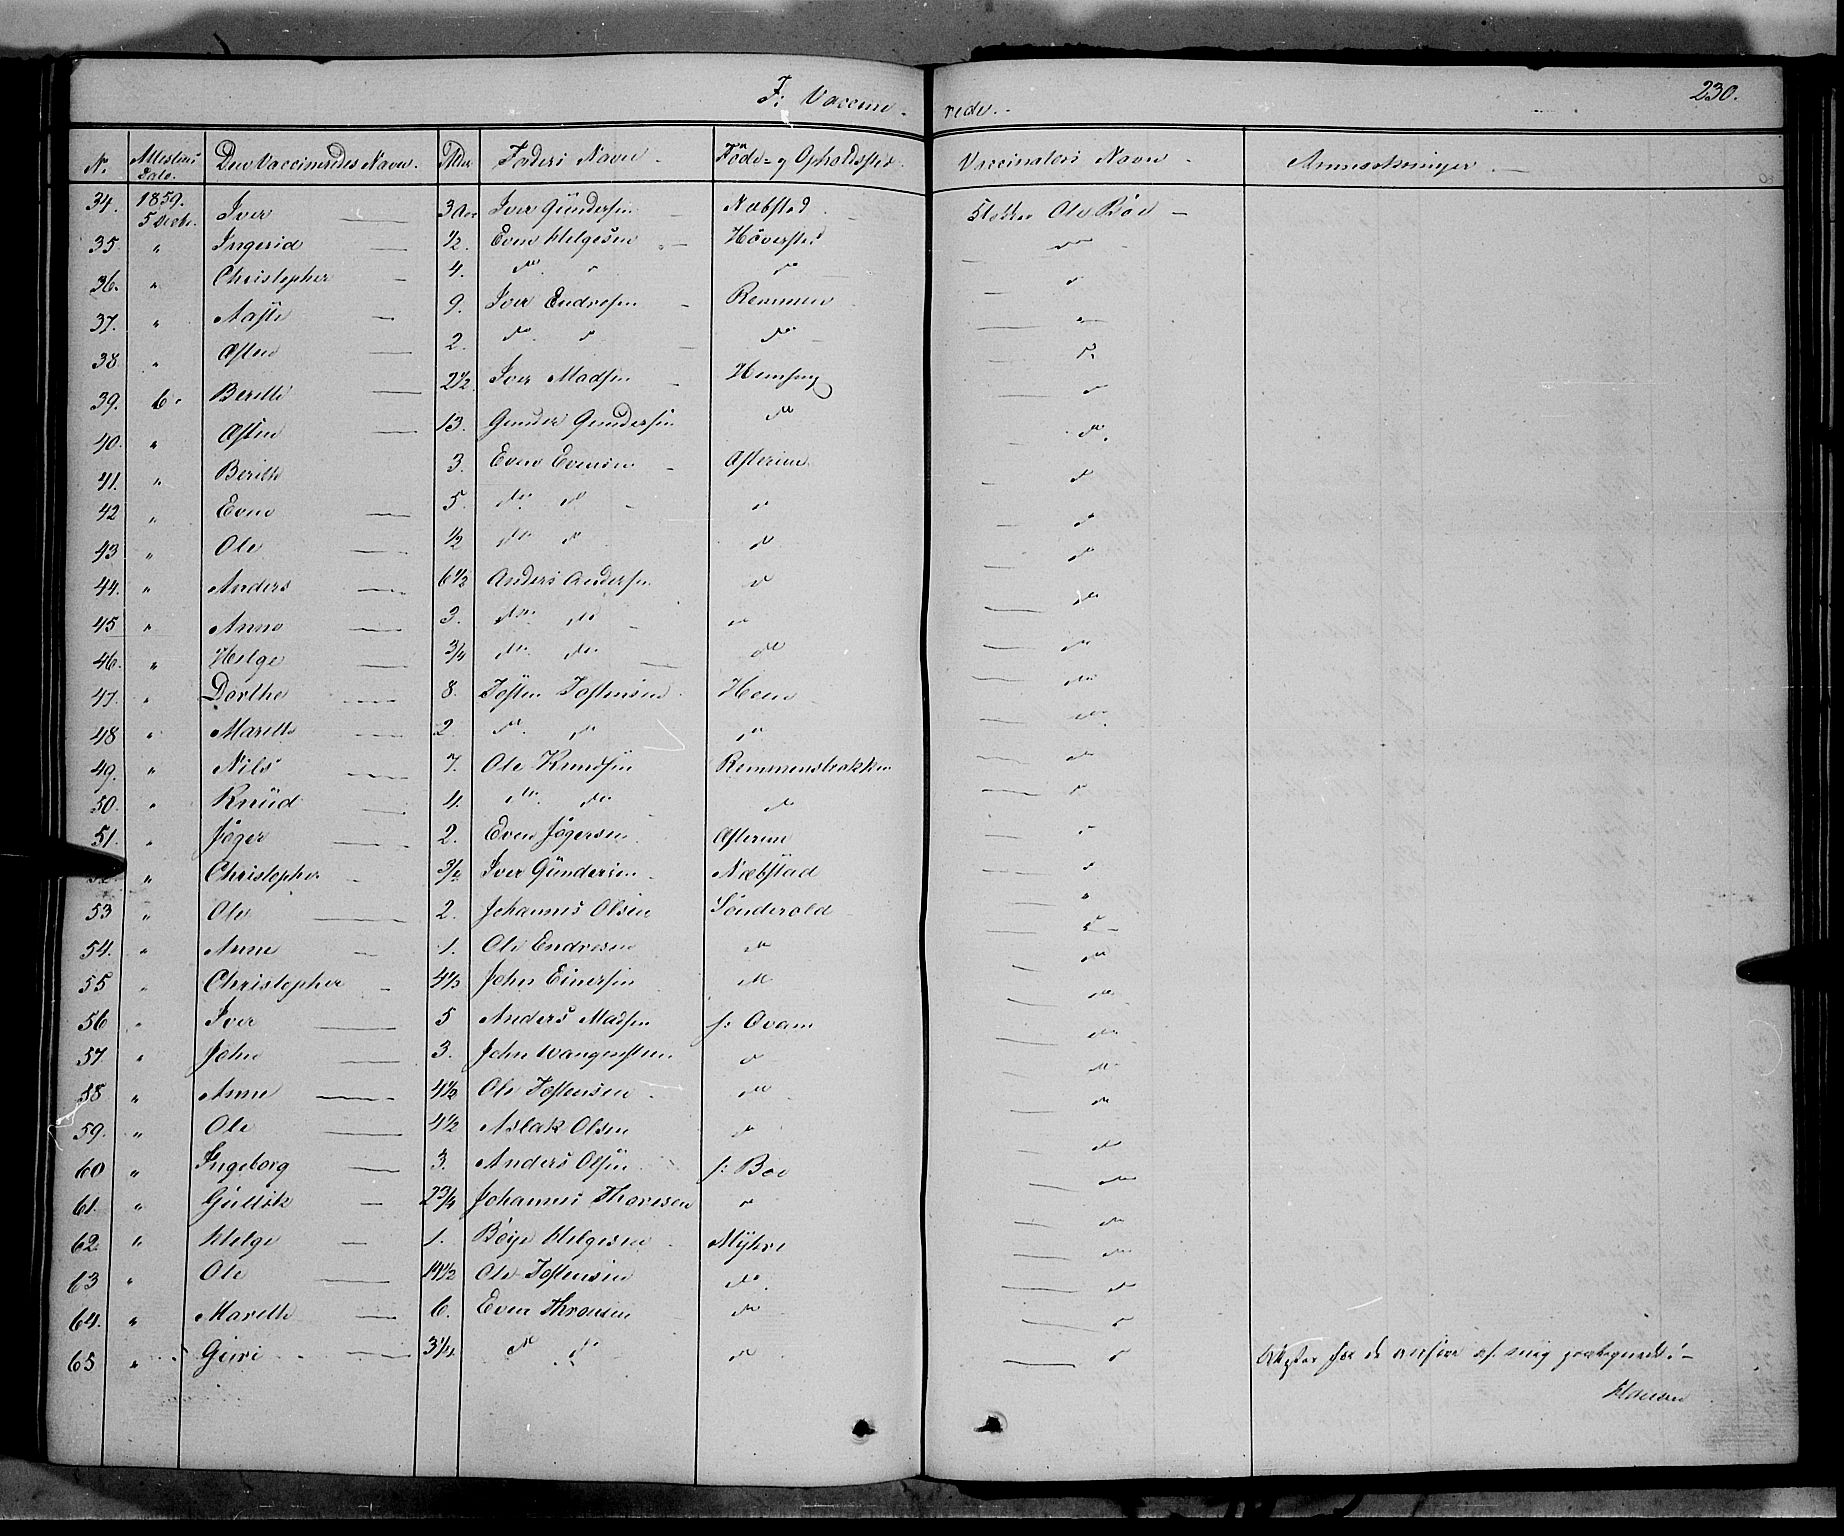 F: Vaccine- rede.
230.
N. Attestens Dato. Den Vaccineredes Navn. Alder Faders Navn. Föde- og Opholdssted. Vaccinateurs Navn Anmærkninger
34. 1859. 5 Decbr. Iver 3 Aar Iver Gündersen Næbstad Klokker Ole Böe
35 " Ingerid 1/2. Even Helgesen Höversted do
36. " Christopher 4. do do do
37. " Aaste 9. Iver Endresen Remmen
38 " Østen 2. do do do do
39. 6. Berette 2 1/2. Iver Madsen Hemsing do
40. " Østen 13. Gunder Gundersen do do
41. " Berithe 3. Even Evensen do
42 " Even 5. do do do do
43 " Ole 1/2 do do do do
44. " Anders 6 1/2 Anders Andersen do do
45 " Anne 3. do do do do
46. " Helge 3/4 do do do do
47. " Dorthe 8. Josten Jostensen Hoen do
48 " Marette 2. do do do do
49. " Nils 7. Ole Knudsen Remmensbakken do
50. " Knüd 4. do do do do
51. " Jöger 2. Even Jögersen do
52. " Christopher Iver Gündersen Næbstad do
53 " Ole 2. Johannes Olsen "
54. " Anne 1. Ole Endresen do
55 " Christopher John Einersen do do
56 " Iver 5 Anders Madsen do
57. " John 3. John Wangensteen do do
58 " Anne 4 1/2 Ole Jostensen do do
59. " Ole 4 1/2 Aslak Olsen do do
60 " Ingeborg 3. Anders Olsen s: Böe do
61. " Güllik 2 3/4 Johannes Thoresen do do
62. " Helge 1. Böye Helgesen Myhre do
63 " Ole 14 1/2 Ole Jostensen do do
64. " Marette 6. Even Thronsen do do
65 " Guri 3 1/4 do do do do